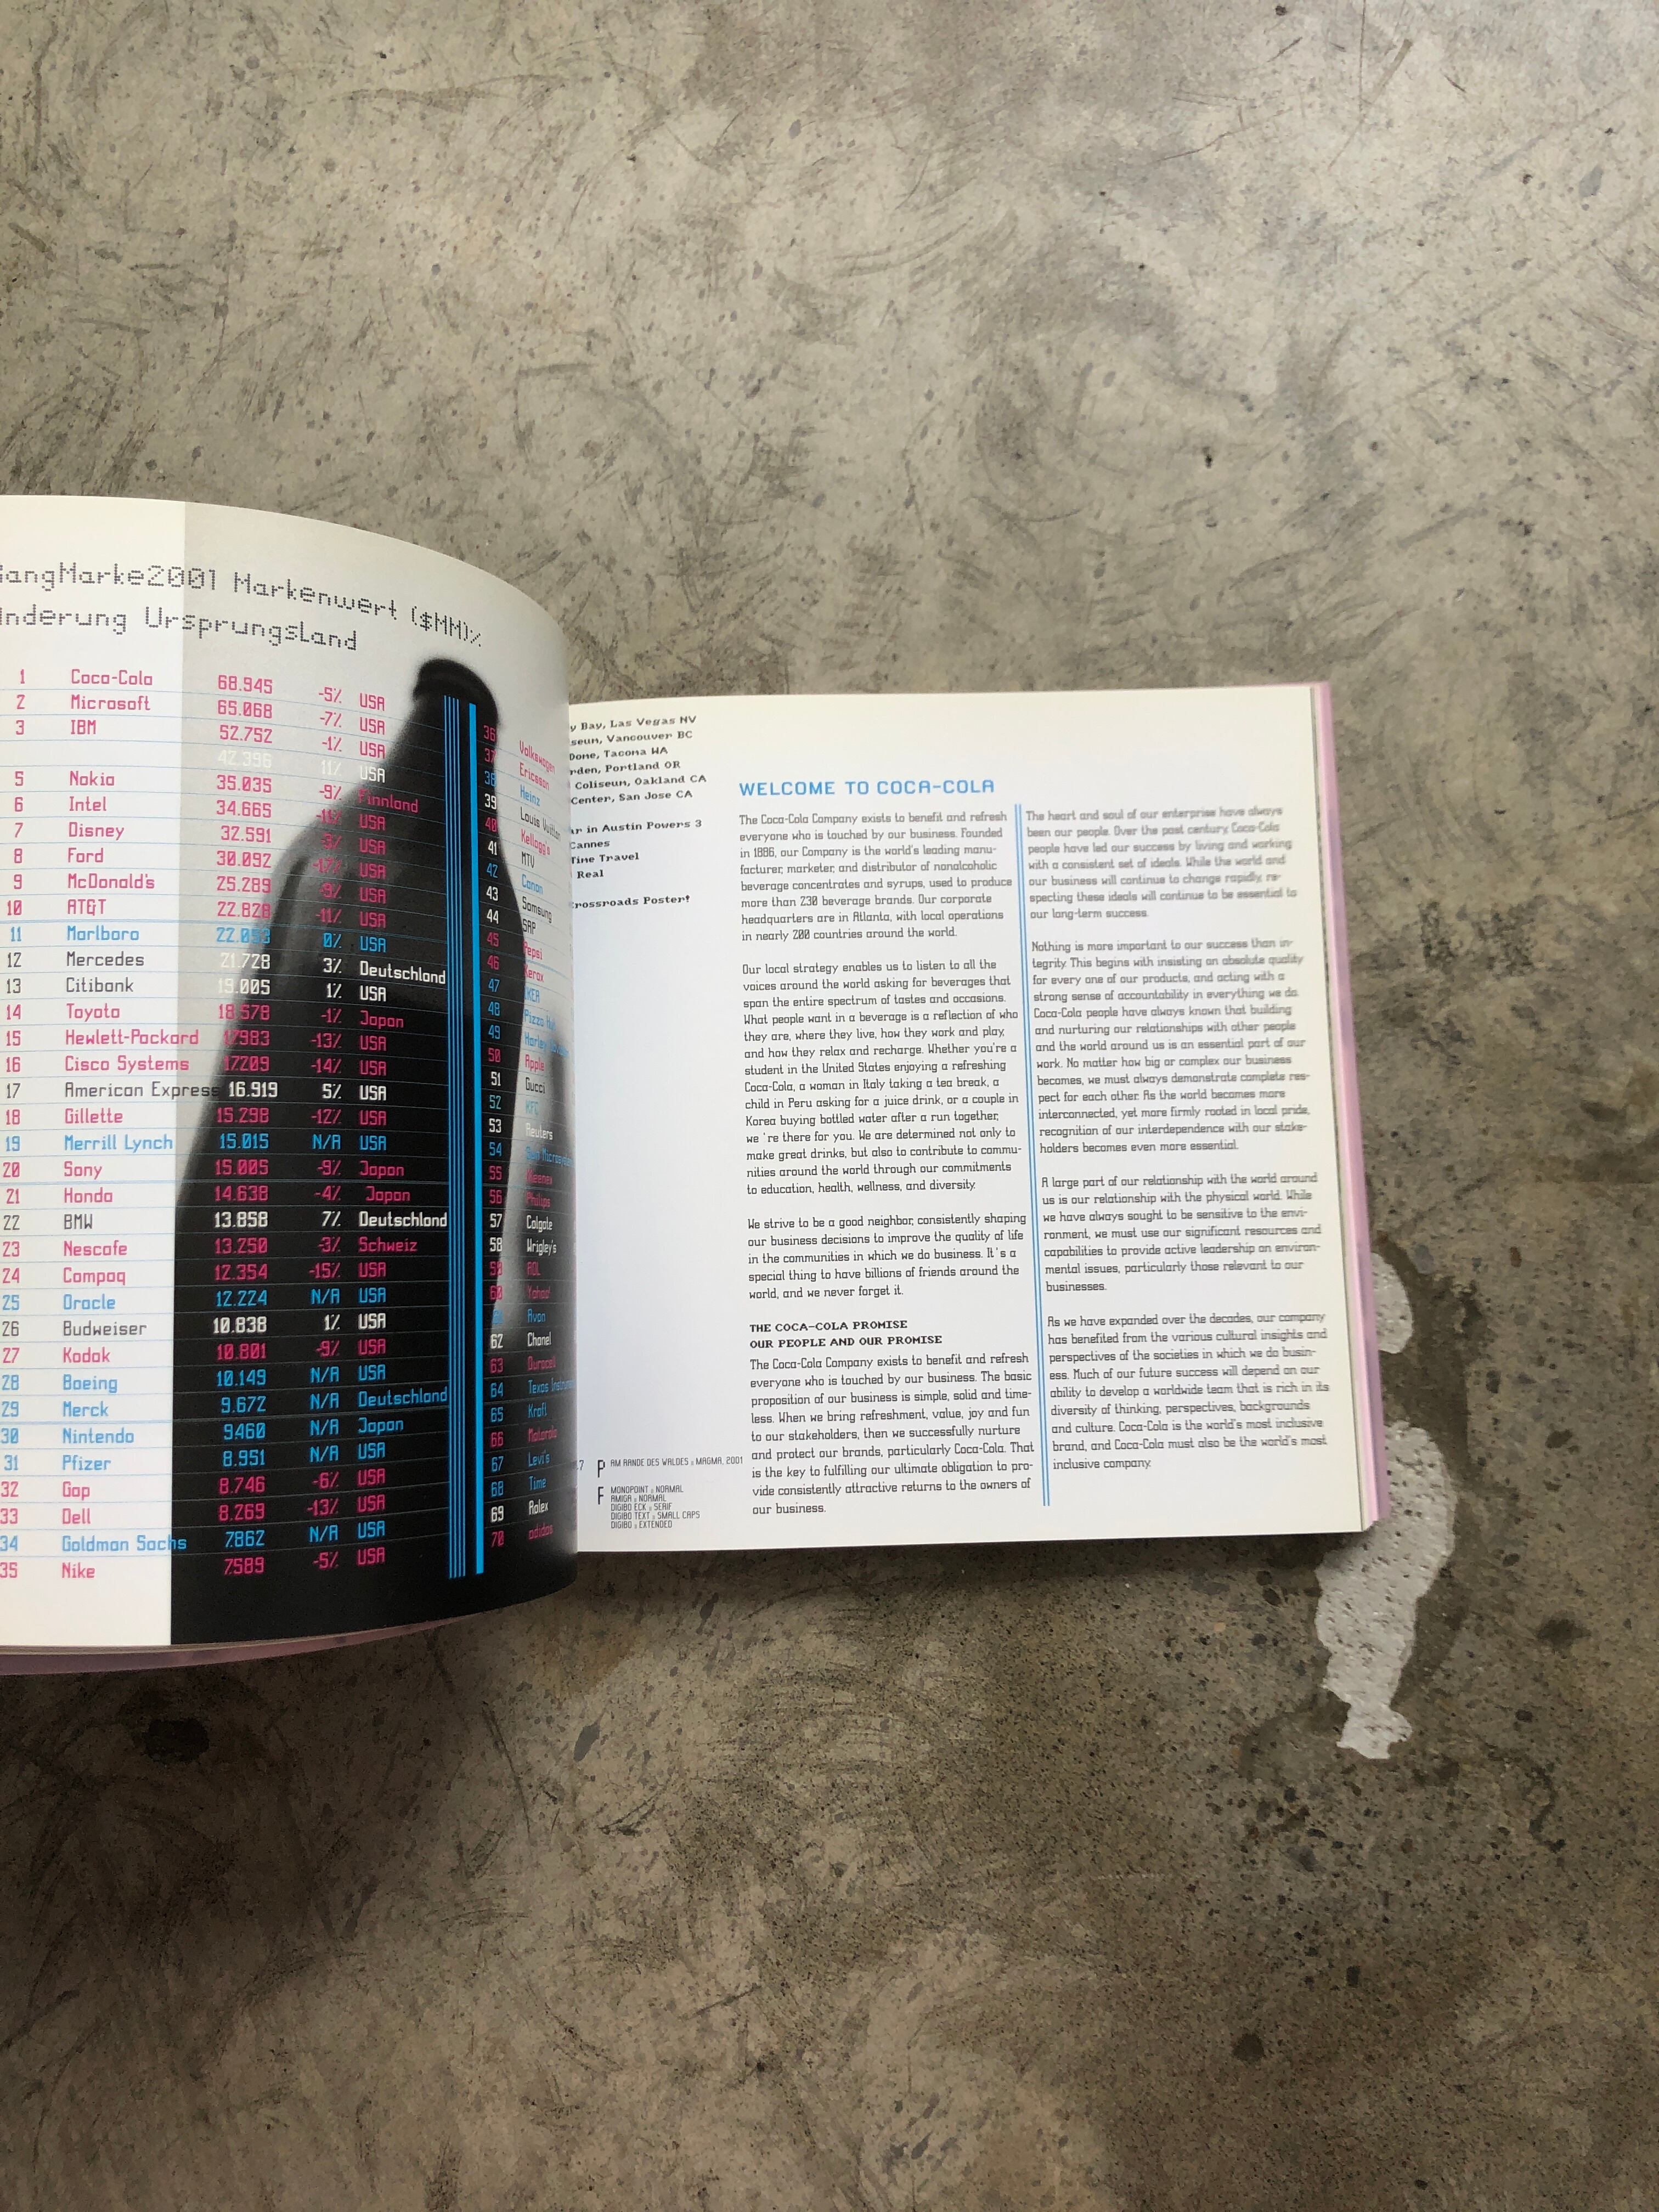 GangMarke2001 Markenwert ($MM)%
Änderung Ursprungsland
1 Coca-Cola 68.945 -5% USA
2 Microsoft 65.068 -7% USA
3 IBM 52.752 -1% USA
42.396 11% USA
5 Nokia 35.035 -9% Finnland
6 Intel 34.665 -11% USA
7 Disney 32.591 -3% USA
8 Ford 30.092 -17% USA
9 McDonald's 25.289 -9% USA
10 AT&T 22.828 -11% USA
11 Marlboro 22.053 0% USA
12 Mercedes 21.728 3% Deutschland
13 Citibank 19.005 1% USA
14 Toyota 18.578 -1% Japan
15 Hewlett-Packard 17.983 -13% USA
16 Cisco Systems 17.209 -14% USA
17 American Express 16.919 5% USA
18 Gillette 15.298 -12% USA
19 Merrill Lynch 15.015 N/A USA
20 Sony 15.005 -9% Japan
21 Honda 14.638 -4% Japan
22 BMW 13.858 7% Deutschland
23 Nescafe 13.250 -3% Schweiz
24 Compaq 12.354 -15% USA
25 Oracle 12.224 N/A USA
26 Budweiser 10.838 1% USA
27 Kodak 10.801 -9% USA
28 Boeing 10.149 N/A USA
29 Merck 9.672 N/A Deutschland
30 Nintendo 9.460 N/A Japan
31 Pfizer 8.951 N/A USA
32 Gap 8.746 -6% USA
33 Dell 8.269 -13% USA
34 Goldman Sachs 7.862 N/A USA
35 Nike 7.589 -5% USA
36 Volkswagen
37 Ericsson
38 Heinz
39 Louis Vuitton
40 Kellogg's
41 MTV
42 Canon
43 Samsung
44 SAP
45 Pepsi
46 Xerox
47 IKEA
48 Pizza Hut
49 Harley
50 Apple
51 Gucci
52 KFC
53 Reuters
54 Sun Microsystems
55 Kleenex
56 Philips
57 Colgate
58 Wrigley's
59 AOL
60 Yahoo!
61 Avon
62 Chanel
63 Duracell
64 Texas Instruments
65 Kraft
66 Motorola
67 Levi's
68 Time
69 Rolex
70 adidas
y Bay, Las Vegas NV
seum, Vancouver BC
Dome, Tacoma WA
rden, Portland OR
Coliseum, Oakland CA
Center, San Jose CA
ar in Austin Powers 3
Cannes
Time Travel
Real
rossroads Poster!
P AM RANDE DES WALDES : MAGMA, 2001
F MONOPOINT : NORMAL
AMIGA : NORMAL
DIGIBO ECK : SERIF
DIGIBO TEXT : SMALL CAPS
DIGIBO : EXTENDED
WELCOME TO COCA-COLA
The Coca-Cola Company exists to benefit and refresh
everyone who is touched by our business. Founded
in 1886, our Company is the world's leading manu-
facturer, marketer, and distributor of nonalcoholic
beverage concentrates and syrups, used to produce
more than 230 beverage brands. Our corporate
headquarters are in Atlanta, with local operations
in nearly 200 countries around the world.
Our local strategy enables us to listen to all the
voices around the world asking for beverages that
span the entire spectrum of tastes and occasions.
What people want in a beverage is a reflection of who
they are, where they live, how they work and play,
and how they relax and recharge. Whether you're a
student in the United States enjoying a refreshing
Coca-Cola, a woman in Italy taking a tea break, a
child in Peru asking for a juice drink, or a couple in
Korea buying bottled water after a run together,
we 're there for you. We are determined not only to
make great drinks, but also to contribute to commu-
nities around the world through our commitments
to education, health, wellness, and diversity.
We strive to be a good neighbor, consistently shaping
our business decisions to improve the quality of life
in the communities in which we do business. It's a
special thing to have billions of friends around the
world, and we never forget it.
THE COCA-COLA PROMISE
OUR PEOPLE AND OUR PROMISE
The Coca-Cola Company exists to benefit and refresh
everyone who is touched by our business. The basic
proposition of our business is simple, solid and time-
less. When we bring refreshment, value, joy and fun
to our stakeholders, then we successfully nurture
and protect our brands, particularly Coca-Cola. That
is the key to fulfilling our ultimate obligation to pro-
vide consistently attractive returns to the owners of
our business.
The heart and soul of our enterprise have always
been our people. Over the past century, Coca-Cola
people have led our success by living and working
with a consistent set of ideals. While the world and
our business will continue to change rapidly, re-
specting these ideals will continue to be essential to
our long-term success.
Nothing is more important to our success than in-
tegrity. This begins with insisting on absolute quality
for every one of our products, and acting with a
strong sense of accountability in everything we do.
Coca-Cola people have always known that building
and nurturing our relationships with other people
and the world around us is an essential part of our
work. No matter how big or complex our business
becomes, we must always demonstrate complete res-
pect for each other. As the world becomes more
interconnected, yet more firmly rooted in local pride,
recognition of our interdependence with our stake-
holders becomes even more essential.
A large part of our relationship with the world around
us is our relationship with the physical world. While
we have always sought to be sensitive to the envi-
ronment, we must use our significant resources and
capabilities to provide active leadership on environ-
mental issues, particularly those relevant to our
businesses.
As we have expanded over the decades, our company
has benefited from the various cultural insights and
perspectives of the societies in which we do busin-
ess. Much of our future success will depend on our
ability to develop a worldwide team that is rich in its
diversity of thinking, perspectives, backgrounds
and culture. Coca-Cola is the world's most inclusive
brand, and Coca-Cola must also be the world's most
inclusive company.